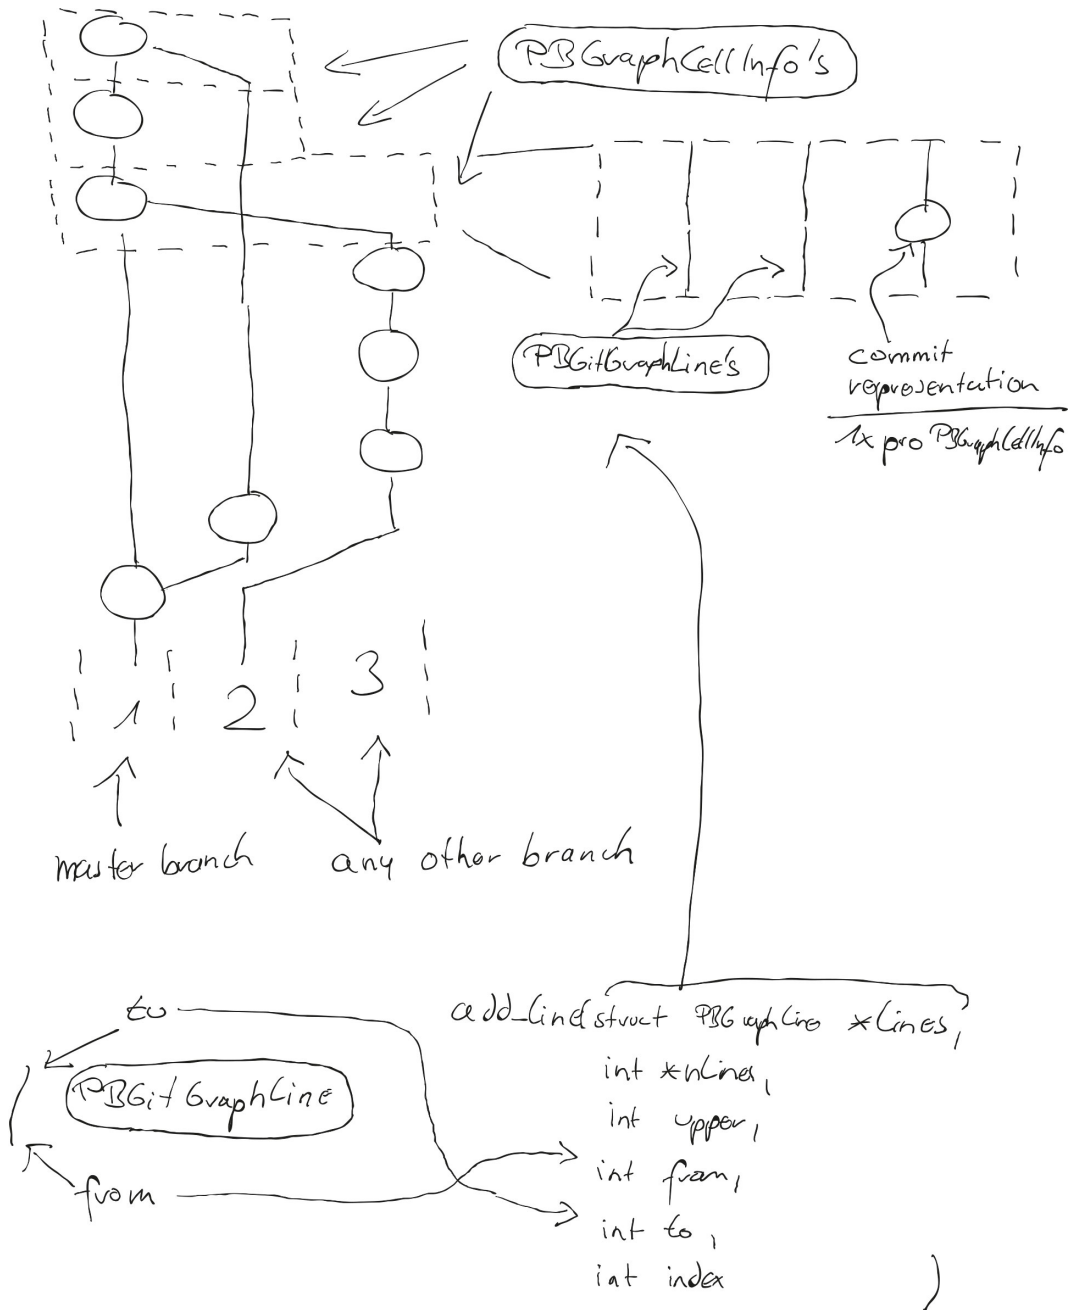 PBGraphCellInfo's
PBGitGraphLine's
commit
representation
1x pro PBGraphCellInfo
1 2 3
master branch
any other branch
to
PBGitGraphLine
from
add_line(struct PBGraphLine *lines,
int *nLines,
int upper,
int from,
int to,
int index
)